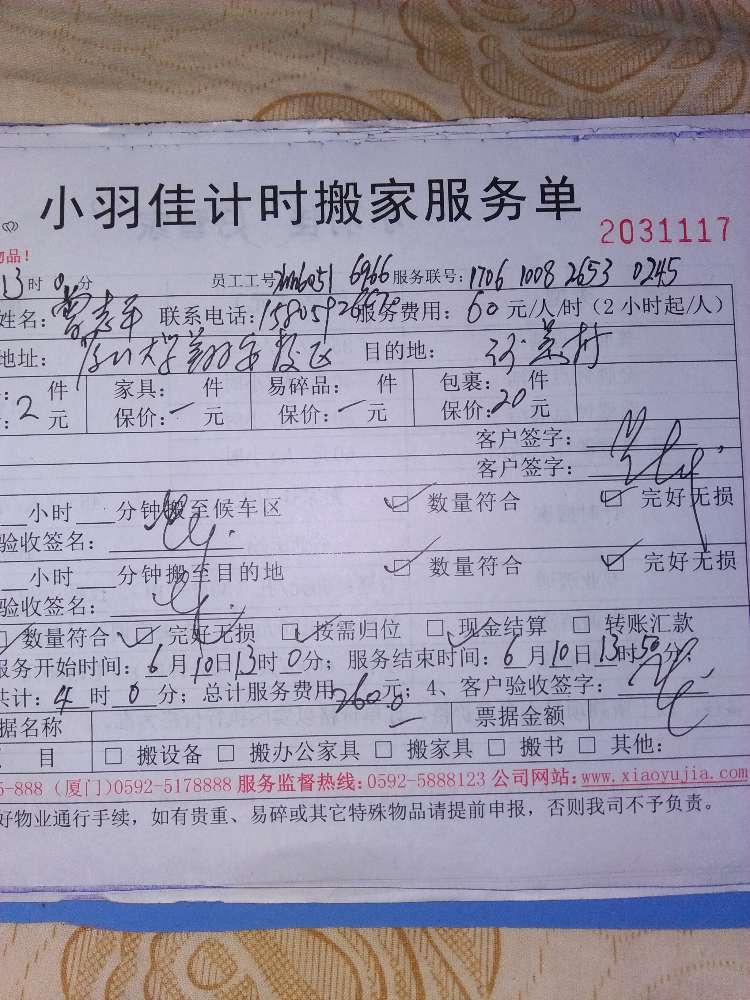 小羽佳计时搬家服务单
2031117
物品！
13时0分 员工工号 6966 服务联号：1706 1008 2653 0245
姓名： 联系电话： 服务费用：60元/人/时（2小时起/人）
地址：厦门大学翔安校区 目的地：
件 家具： 件 易碎品： 件 包裹： 件
：2元 保价：一元 保价：一元 保价：20元
客户签字：
客户签字：
小时 分钟搬至候车区 ☑ 数量符合 ☑ 完好无损
验收签名：
小时 分钟搬至目的地 ☑ 数量符合 ☑ 完好无损
验收签名：
☑ 数量符合 ☑ 完好无损 ☑ 按需归位 ☑ 现金结算 □ 转账汇款
服务开始时间：6月10日13时0分；服务结束时间：6月10日13时50分；
共计：4时0分；总计服务费用260.0元；4、客户验收签字：
据名称 票据金额
目 □ 搬设备 □ 搬办公家具 □ 搬家具 □ 搬书 □ 其他：
5-888（厦门）0592-5178888 服务监督热线：0592-5888123 公司网站：www.xiaoyujia.com
好物业通行手续，如有贵重、易碎或其它特殊物品请提前申报，否则我司不予负责。